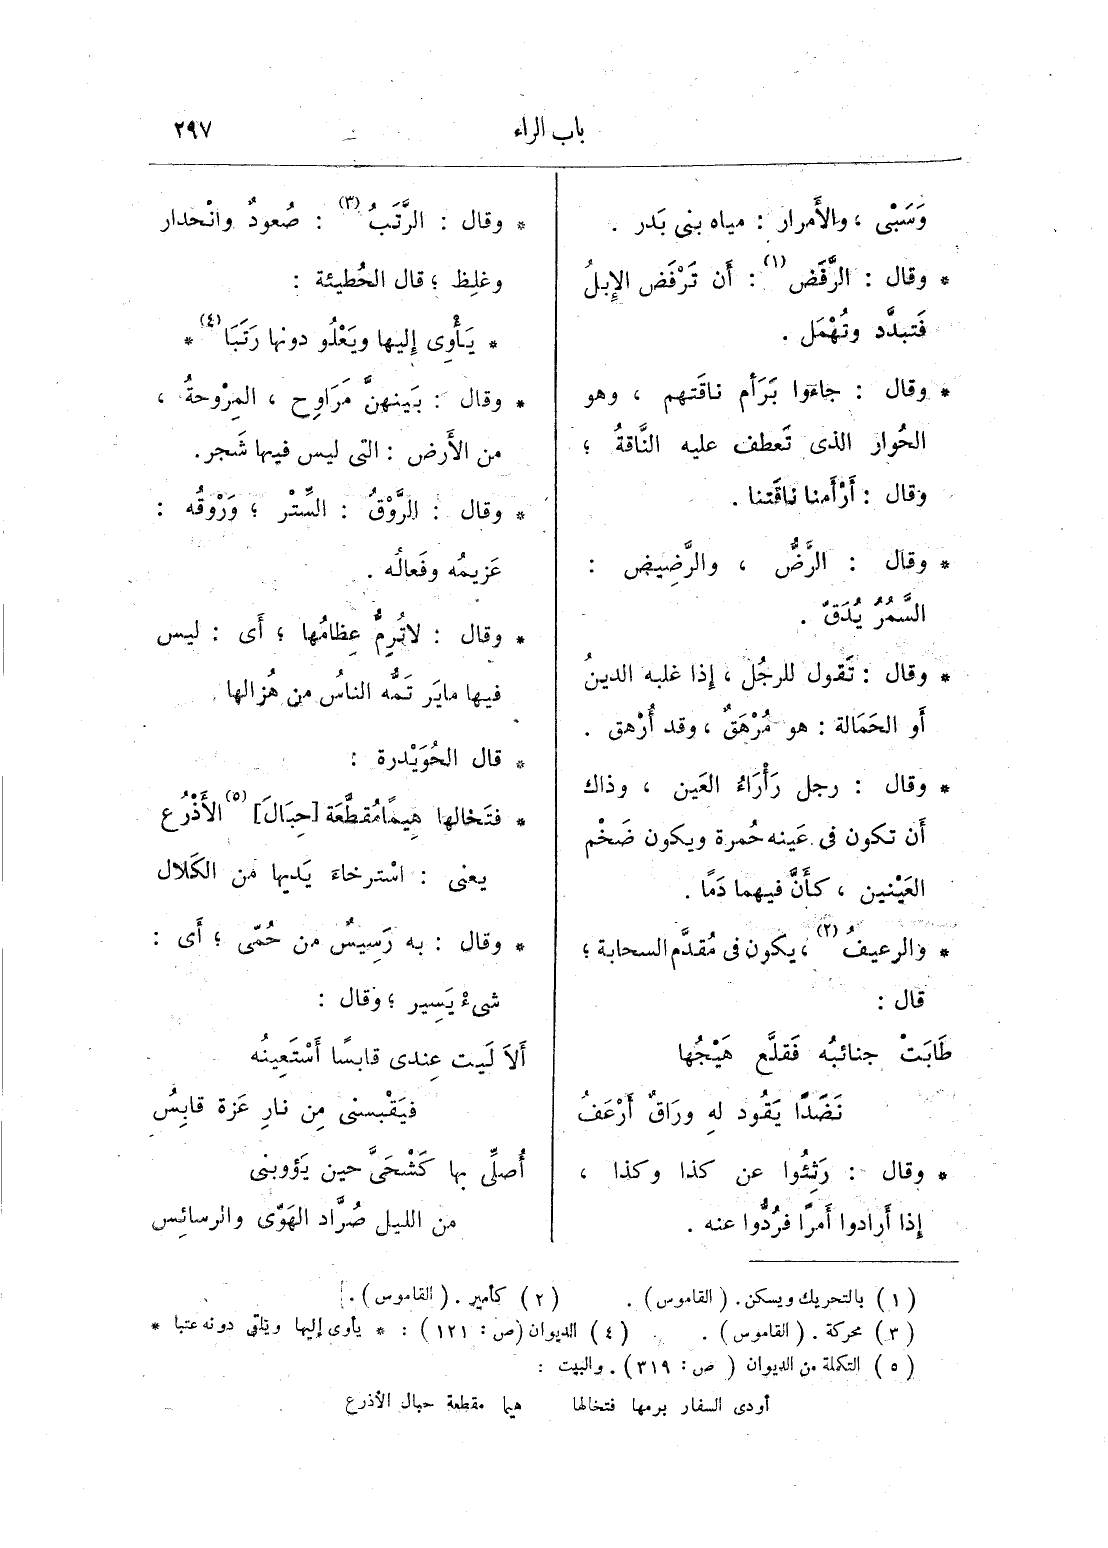 باب الراء ٢٩٧
وَسَبْى ، والأَمرار : مياه بنى بَدر .
* وقال : الرَّفَض (١) : أَن تَرْفَض الإِبلُ
فَتبدَّد وتُهْمَل .
* وقال : جاءوا بَرَأم ناقَتهم ، وهو
الحُوار الذى تَعطف عليه النَّاقةُ ؛
وقال : أَرْأَمنا ناقَتنا .
* وقال : الرَّضُّ ، والرَّضِيض :
السَّمُرُ يُدَقّ .
* وقال : تَقول للرجُل ، إِذا غلبه الدينُ
أَو الحَمَالة : هو مُرْهَقٌ ، وقد أُرْهق .
* وقال : رجل رَأْرَاءُ العَين ، وذاك
أَن تكون فى عَينه حُمرة ويكون ضَخْم
العَيْنين ، كأَنَّ فيهما دَمًا .
* والرعيفُ (٢) ، يكون فى مُقدَّم السحابة ؛
قال :
طَابَتْ جنائبُه فَقلَّع هَيْجُها
نَضَدًا يَقُود له وراقٌ أَرْعَفُ
* وقال : رَثِئُوا عن كذا وكذا ،
إِذا أَرادوا أَمرًا فرُدُّوا عنه .
* وقال : الرَّتَبُ (٣) : صُعودٌ وانْحدار
وغلِظ ؛ قال الحُطيئة :
* يَأْوِى إِليها ويَعْلُو دونها رَتَبَا (٤) *
* وقال : بَينهنَّ مَرَاوِح ، المِرْوحةُ ،
من الأَرض : التى ليس فيها شَجر.
* وقال : الرَّوْقُ : السِّتْر ؛ ورَوْقُه :
عَزيمُه وفَعالُه .
* وقال : لاتُرِمُّ عِظامُها ؛ أَى : ليس
فيها مايَر تَمُّه الناسُ من هُزالها .
* قال الحُوَيْدرة :
* فتَخالها هِيمًامُقطَّعَة [حِبَالَ] (٥) الأَذْرُع
يعنى : اسْترخاءَ يَديها من الكَلال
* وقال : به رَسِيسٌ من حُمّى ؛ أَى :
شىءْ يَسِير ؛ وقال :
أَلاَ لَيت عِندى قابسًا أَسْتَعِينُه
فيَقْبسنى مِن نارِ عَزة قابِسُ
أُصلِّى بها كَشْحَىَّ حين يَؤوبنى
من الليل صُرَّاد الهَوّى والرسائِس
(١) بالتحريك ويسكن. (القاموس) . (٢) كأمير . (القاموس) .
(٣) محركة . (القاموس) . (٤) الديوان (ص : ١٢١) : * يأوى إليها ويلقى دونه عتبا *
(٥) التكملة من الديوان ( ص : ٣١٩) . والبيت :
أودى السفار برمها فتخالها هيما مقطعة حبال الأذرع